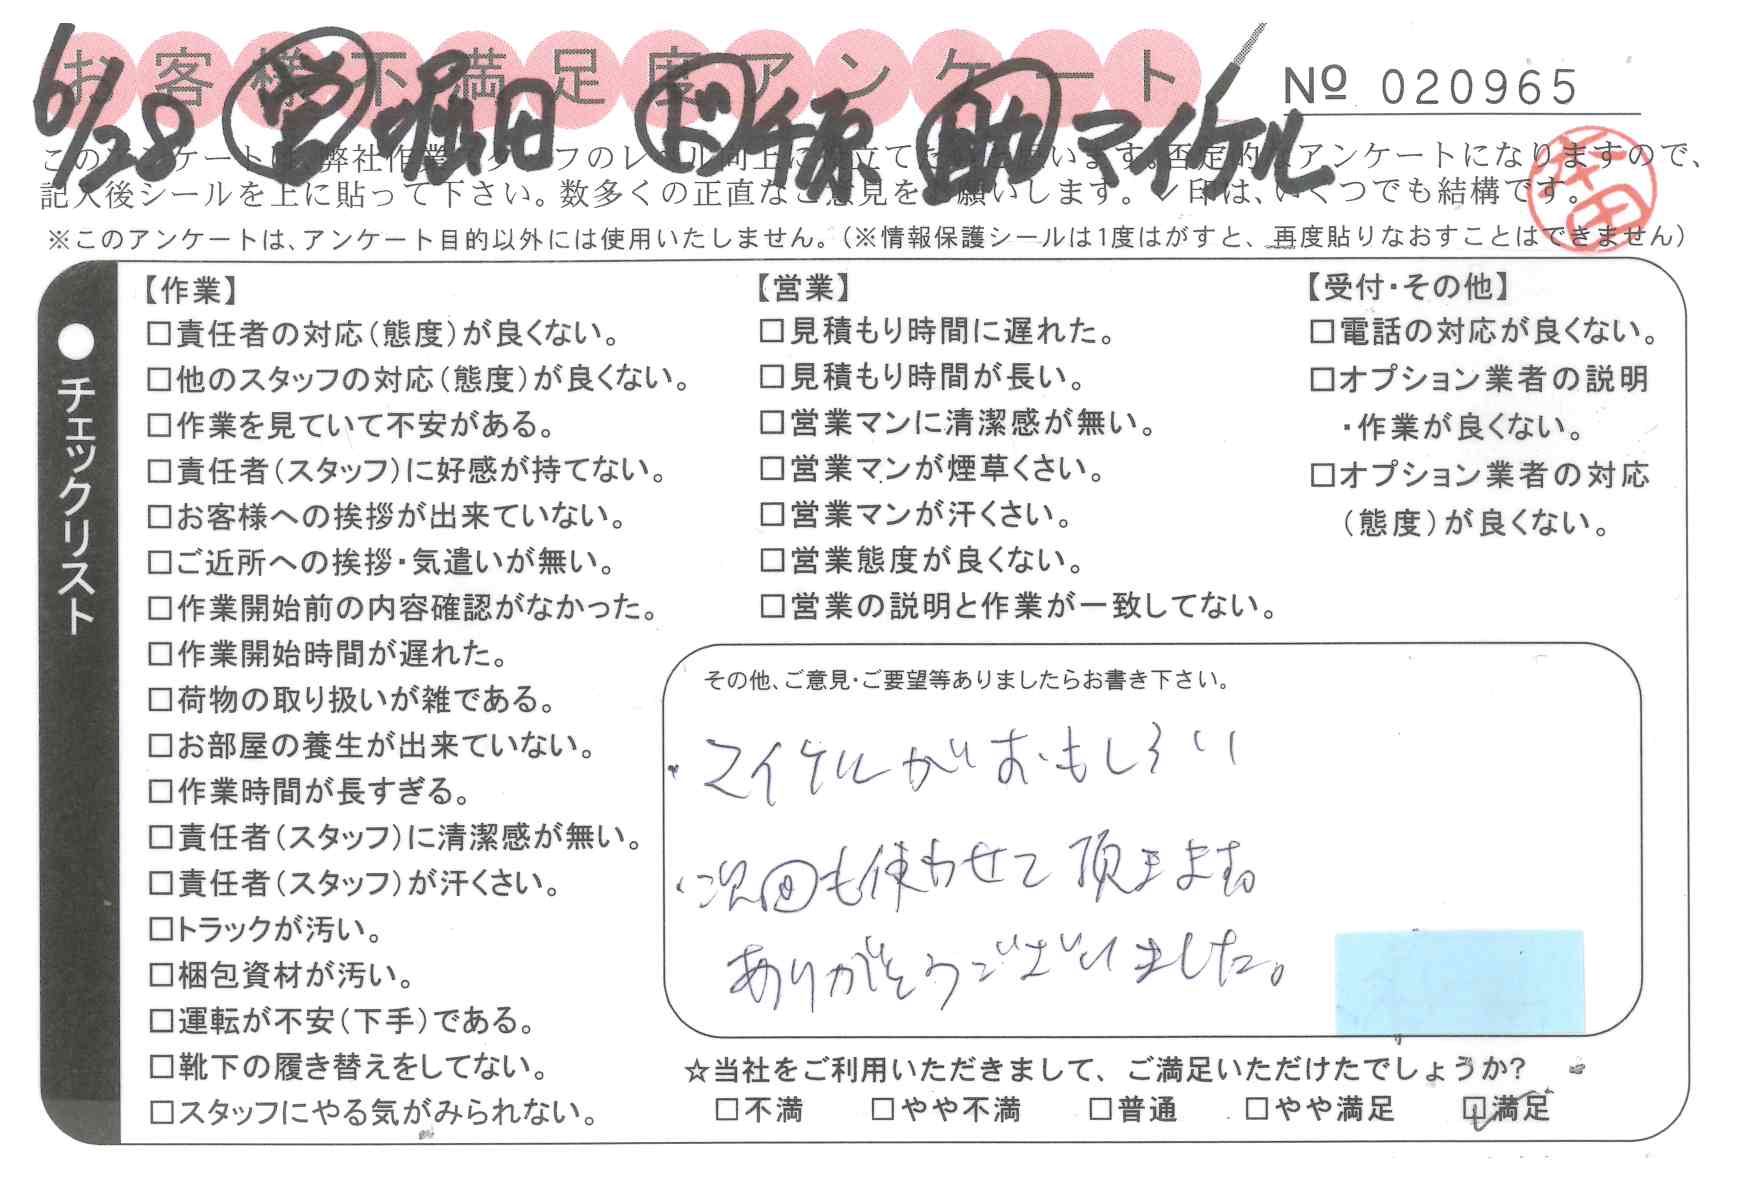 お客様不満足度アンケート
№ 020965
6/28 営 堀田 ド 千原 助 マイケル
このアンケートは、弊社作業スタッフのレベル向上に役立てたいと思います。否定的なアンケートになりますので、
記入後シールを上に貼って下さい。数多くの正直なご意見をお願いします。✓印は、いくつでも結構です。
※このアンケートは、アンケート目的以外には使用いたしません。(※情報保護シールは1度はがすと、再度貼りなおすことはできません)
●チェックリスト
【作業】
□責任者の対応(態度)が良くない。
□他のスタッフの対応(態度)が良くない。
□作業を見ていて不安がある。
□責任者(スタッフ)に好感が持てない。
□お客様への挨拶が出来ていない。
□ご近所への挨拶・気遣いが無い。
□作業開始前の内容確認がなかった。
□作業開始時間が遅れた。
□荷物の取り扱いが雑である。
□お部屋の養生が出来ていない。
□作業時間が長すぎる。
□責任者(スタッフ)に清潔感が無い。
□責任者(スタッフ)が汗くさい。
□トラックが汚い。
□梱包資材が汚い。
□運転が不安(下手)である。
□靴下の履き替えをしてない。
□スタッフにやる気がみられない。
【営業】
□見積もり時間に遅れた。
□見積もり時間が長い。
□営業マンに清潔感が無い。
□営業マンが煙草くさい。
□営業マンが汗くさい。
□営業態度が良くない。
□営業の説明と作業が一致してない。
【受付・その他】
□電話の対応が良くない。
□オプション業者の説明
・作業が良くない。
□オプション業者の対応
(態度)が良くない。
その他、ご意見・ご要望等ありましたらお書き下さい。
・マイケルがおもしろい
・次回も使わせて頂きます。
ありがとうございました。
☆当社をご利用いただきまして、ご満足いただけたでしょうか?
□不満 □やや不満 □普通 □やや満足 ☑満足